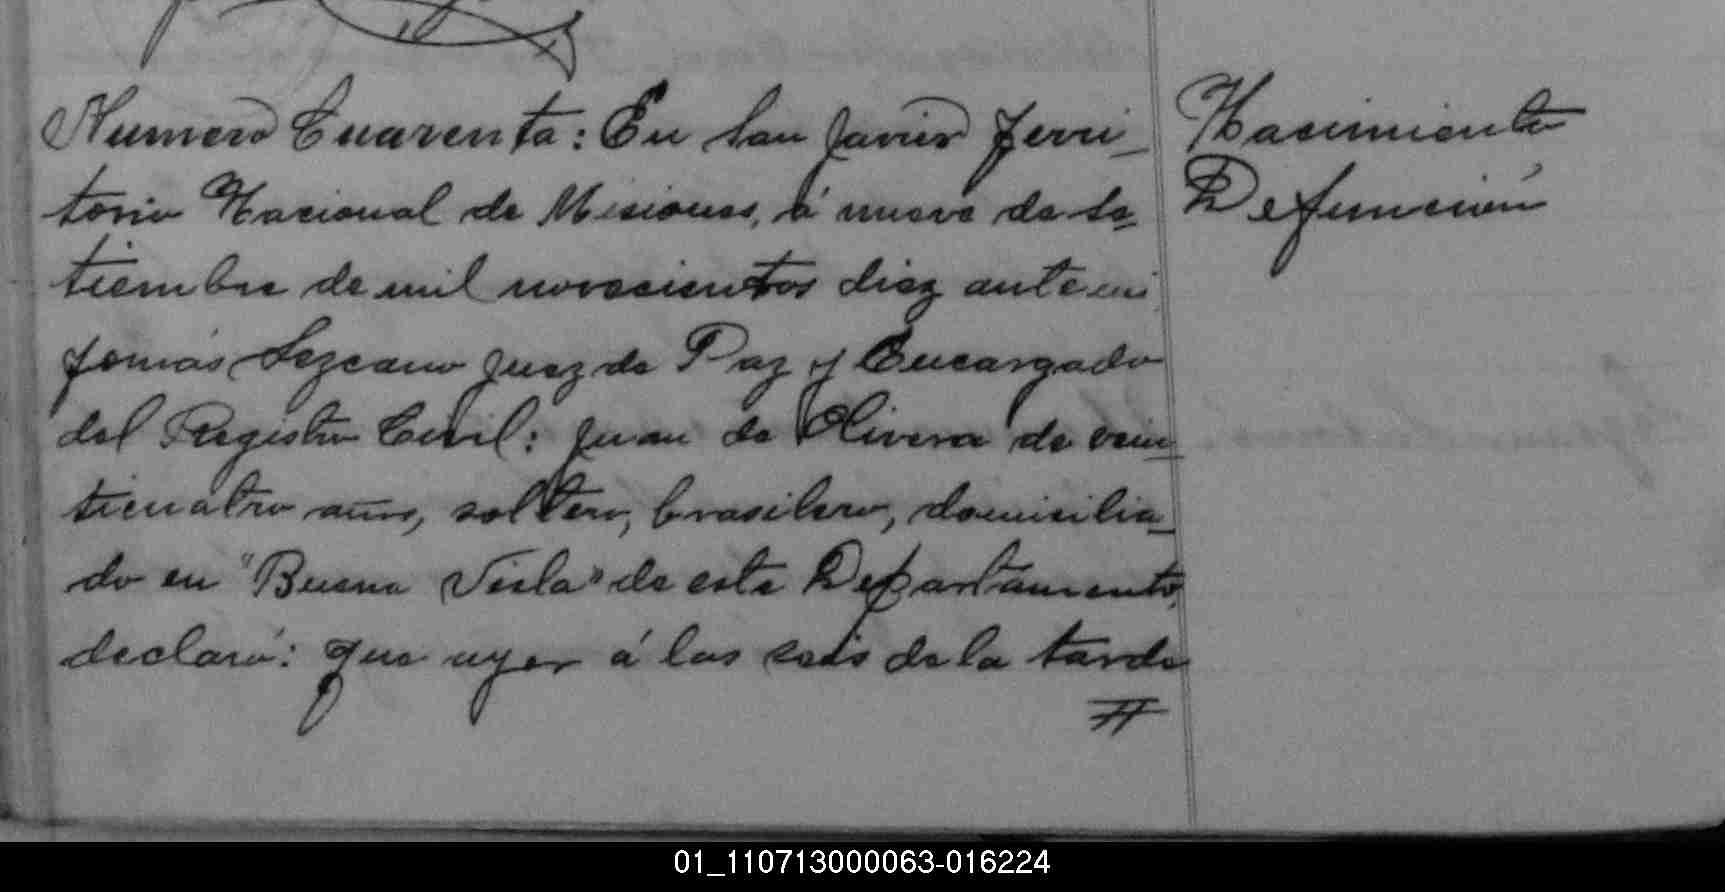 Numero Cuarenta: En San Javier Terri-
torio Nacional de Misiones, á nueve de se-
tiembre de mil novecientos diez ante mi
Tomás Lezcano Juez de Paz y Encargado
del Registro Civil: Juan de Olivera de vein-
ticuatro años, soltero, brasilero, domicilia-
do en "Buena Vista" de este Departamento,
declaró: Que ayer á las seis de la tarde
Nacimiento
Defunción
01_110713000063-016224